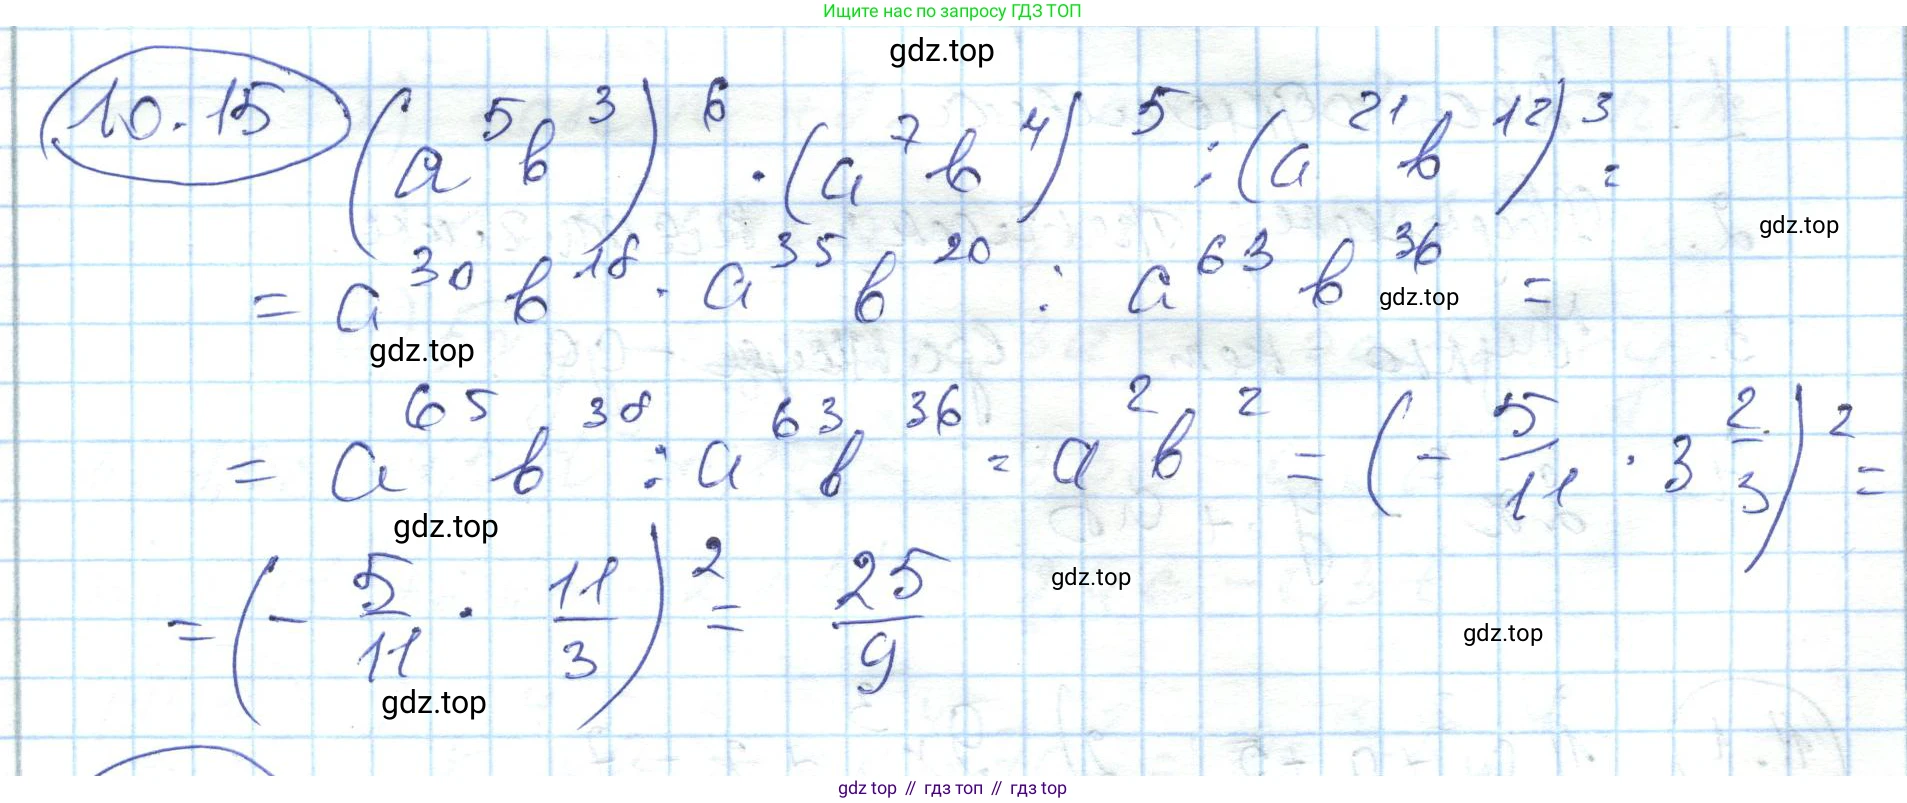 Ищите нас по запросу ГДЗ ТОП
gdz.top
10.15 (a⁵b³)⁶ · (a⁷b⁴)⁵ : (a²¹b¹²)³ =
gdz.top
= a³⁰b¹⁸ · a³⁵b²⁰ : a⁶³b³⁶ =
gdz.top
gdz.top
= a⁶⁵b³⁸ : a⁶³b³⁶ = a²b² = (- 5/11 · 3 2/3)² =
gdz.top
gdz.top
= (- 5/11 · 11/3)² = 25/9
gdz.top
gdz.top
gdz top // гдз топ // гдз top